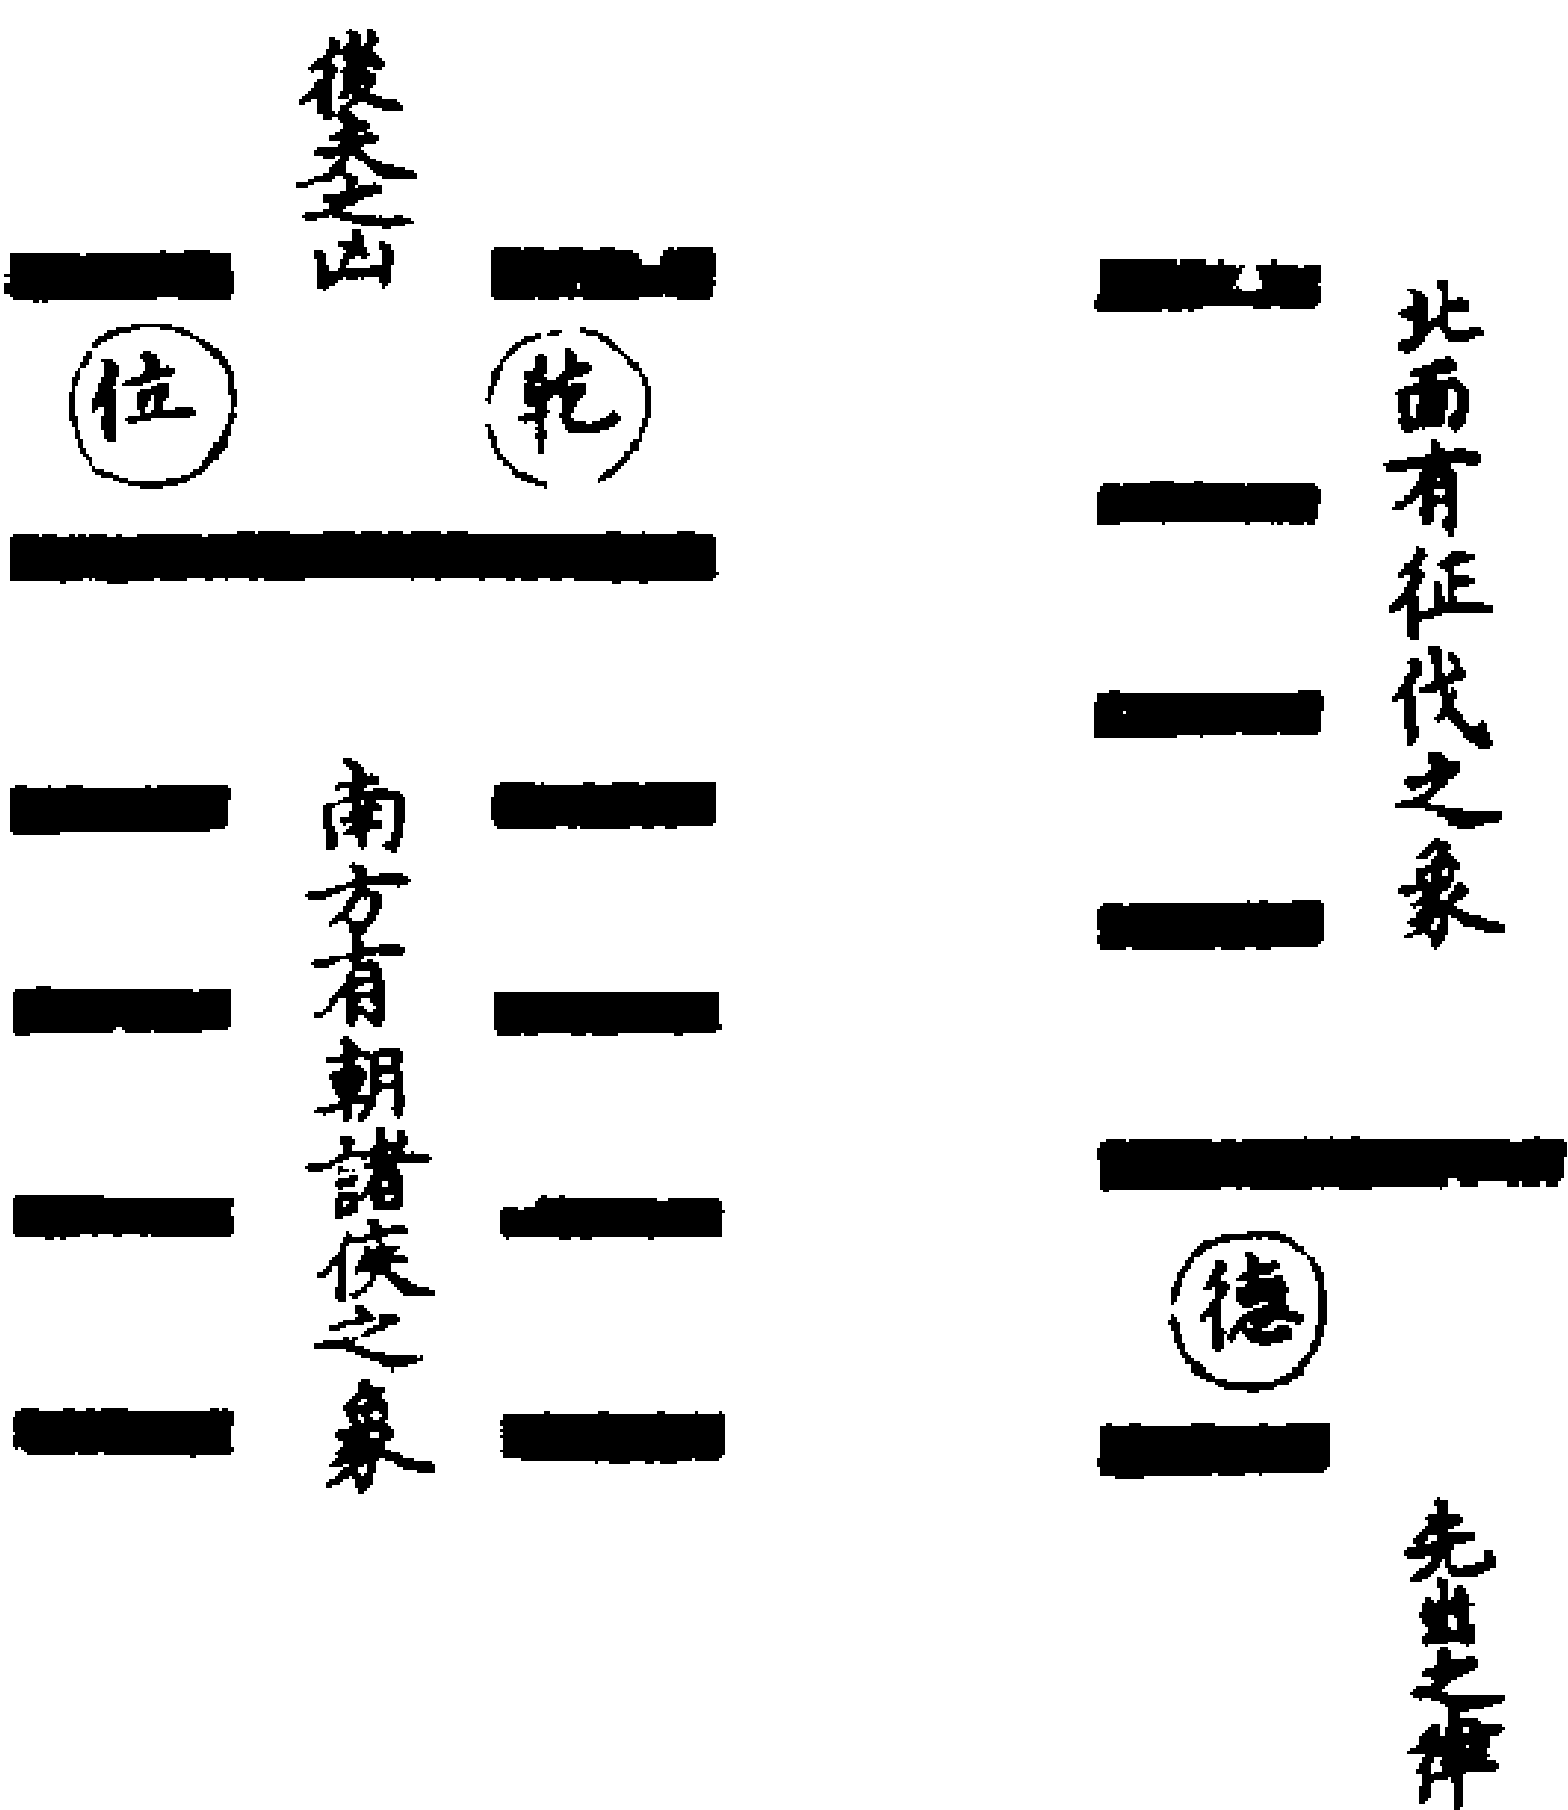 北面有征伐之象
德
先出之律
後夫之凶
乾
位
南方有朝諸侯之象